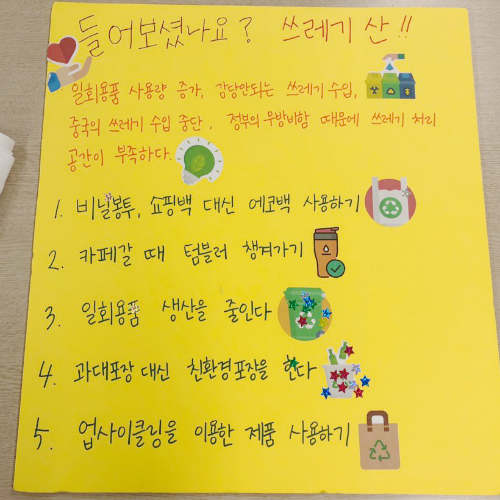 들어보셨나요? 쓰레기 산!!
일회용품 사용량 증가, 감당안되는 쓰레기 수입,
중국의 쓰레기 수입 중단, 정부의 무방비함 때문에 쓰레기 처리
공간이 부족하다.
1. 비닐봉투, 쇼핑백 대신 에코백 사용하기
2. 카페갈 때 텀블러 챙겨가기
3. 일회용품 생산을 줄인다
4. 과대포장 대신 친환경포장을 한다
5. 업사이클링을 이용한 제품 사용하기